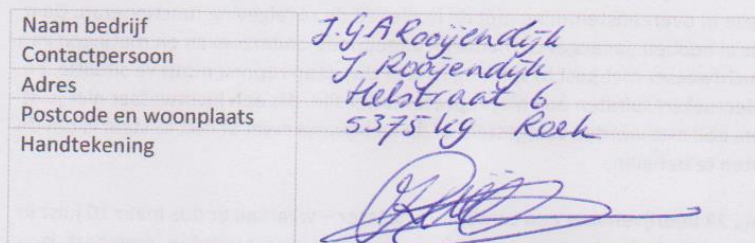 Naam bedrijf J.G A Rooijendijk
Contactpersoon J Rooijendijk
Adres Helstraat 6
Postcode en woonplaats 5375 kg Reek
Handtekening